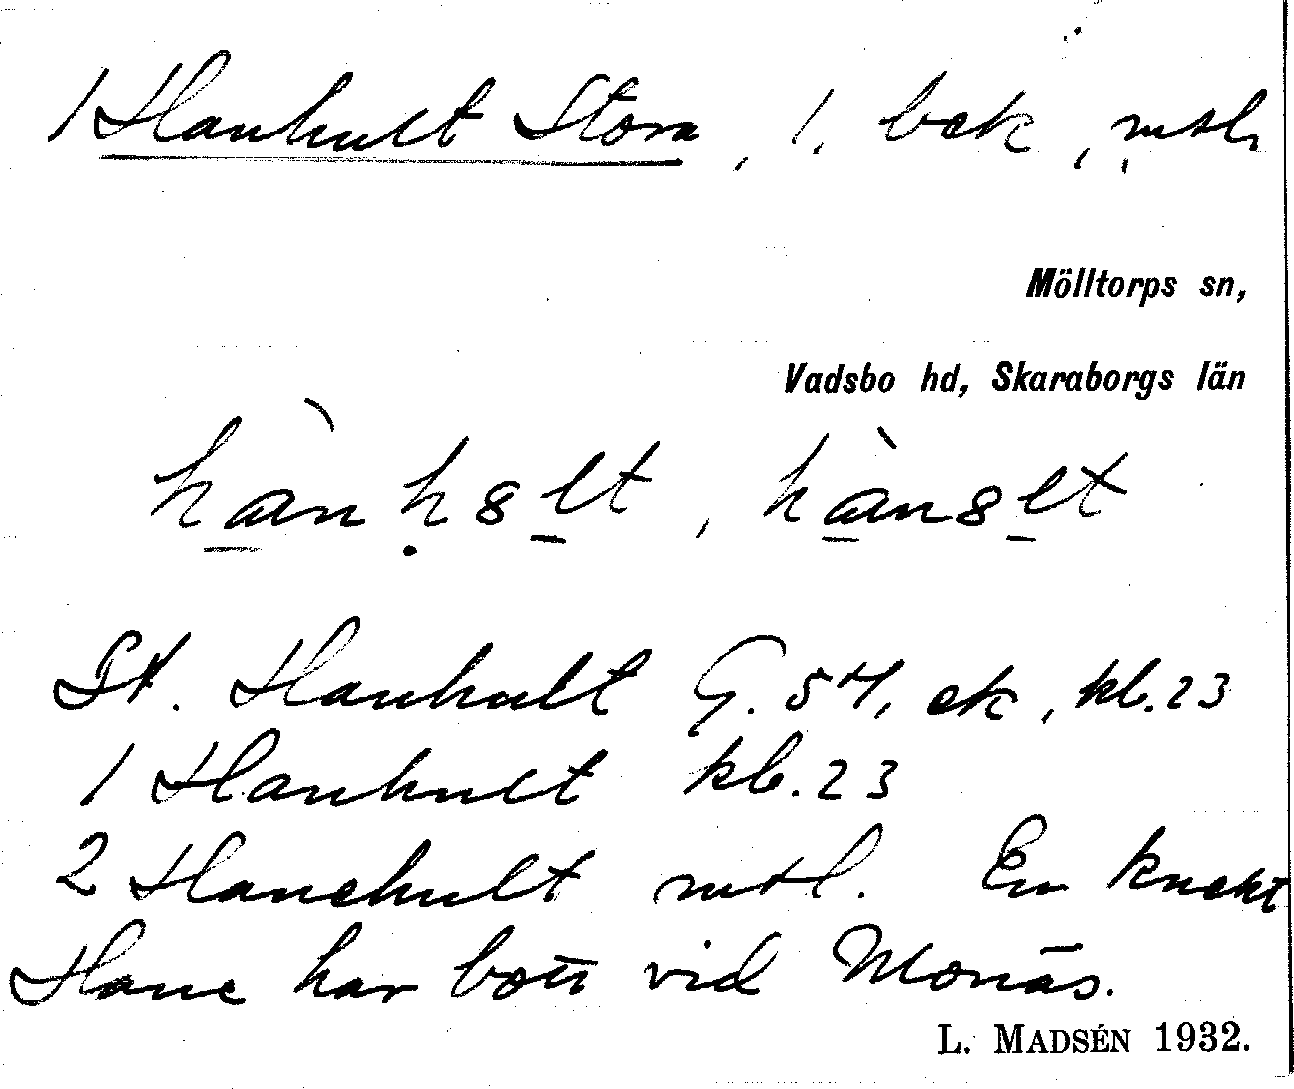 1 Hanhult Stora, 1, bek, mtl,
Mölltorps sn,
Vadsbo hd, Skaraborgs län
hành8lt, hàn8lt
St. Hanhult G. 54, ek, kb. 23
1 Hanhult kb. 23
2 Hanehult mtl. En knekt
Hane har bott vid Monäs.
L. MADSÉN 1932.